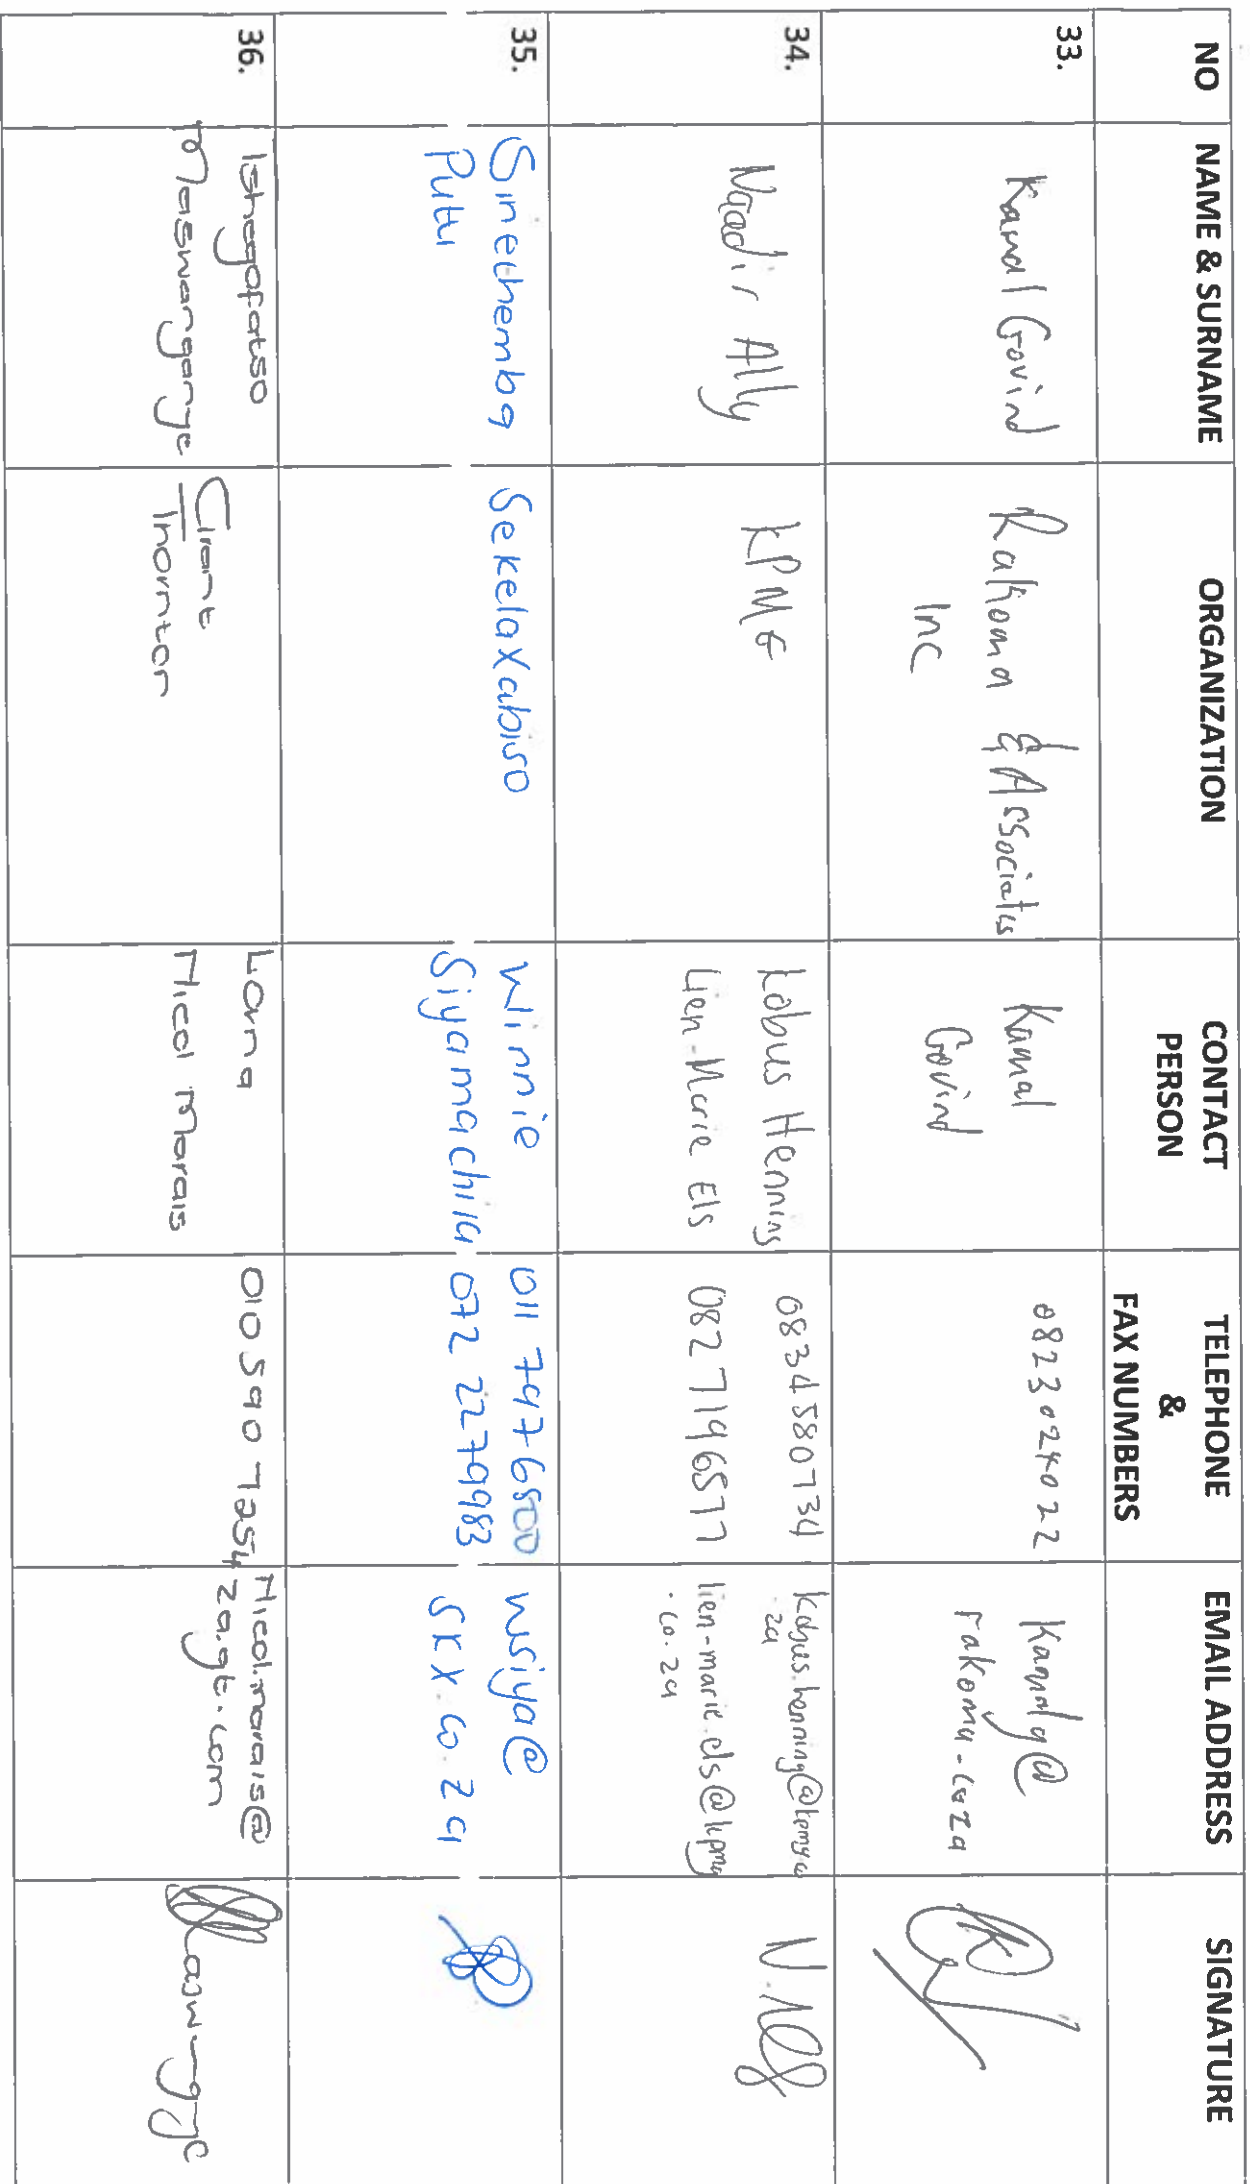 NO
NAME & SURNAME
ORGANIZATION
CONTACT
PERSON
TELEPHONE
&
FAX NUMBERS
EMAIL ADDRESS
SIGNATURE
33.
Kamal Govind
Rakoma & Associates
Inc
Kamal
Govind
0823024022
Kamalg@
rakoma-coza
34.
Naadir Ally
KPMG
Kobus Henning
Lien-Marie Els
0834580734
0827196577
Kobus.henning@kpmg.co
.za
lien-marie.els@kpmg
.co.za
35.
Sinethemba
Putu
SekelaXabiso
Winnie
Siyamachila
011 7976800
072 2279983
wsiya@
skx.co.za
36.
Tshegofatso
Maswanganye
Grant
Thornton
Lorna
Nicol Marais
010 590 7254
Nicol.marais@
za.gt.com